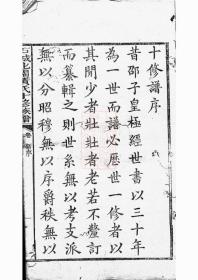 十修譜序
昔邵子皇極經世書以三十年
為一世而譜必歷世一修者以
其間少者壯壯者老若不釐訂
而纂輯之則世系無以考支派
無以分昭穆無以序爵秩無以